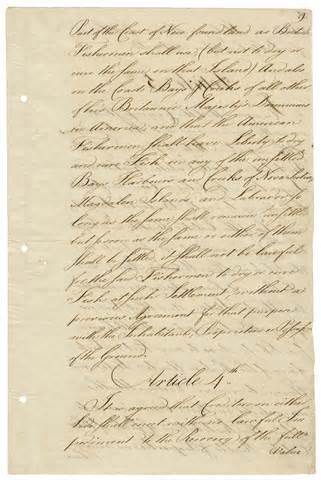 Part of the Coast of Newfoundland as British
Fishermen shall use, (but not to dry or
cure the same on that Island) And also
on the Coasts Bays & Creeks of all other
of his Britannic Majesty's Dominions
in America, and that the American
Fishermen shall have Liberty to dry
and cure Fish in any of the unsettled
Bays Harbours and Creeks of Nova Scotia,
Magdalen Islands, and Labrador so
long as the same shall remain unsettled
but so soon as the same or either of them
shall be settled, it shall not be lawful
for the said Fishermen to dry or cure
Fish at such Settlement, without a
previous Agreement for that purpose
with the Inhabitants, Proprietors or
of the Ground.
Article 4th
It is agreed that Creditors on either
Side shall meet with no lawful Im
pediment to the Recovery of the full
Value